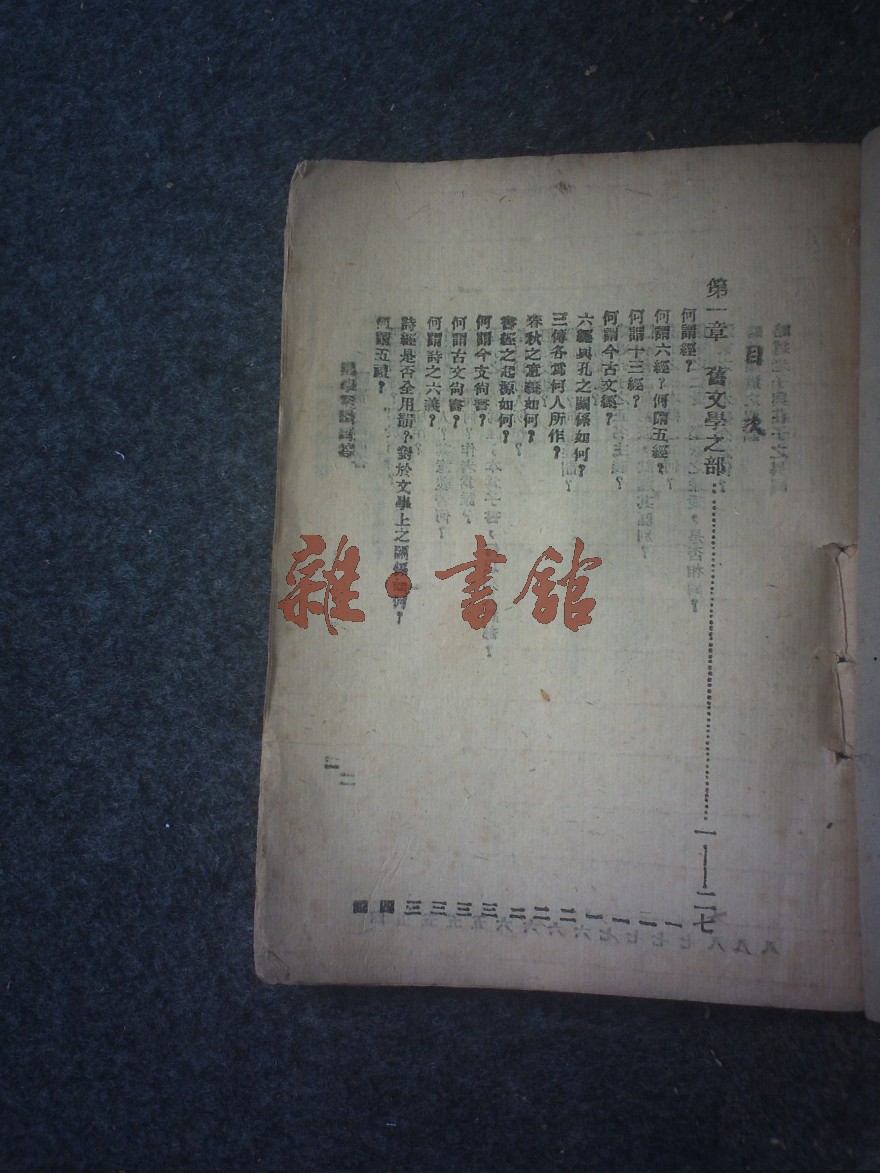 目次
第一章　舊文學之部……一——二七
何謂經？　一
何謂六經？何謂五經？　一
何謂十三經？　一
何謂今古文經？　一
六經與孔之關係如何？　二
三傳各為何人所作？　二
春秋之意義如何？　二
書經之起源如何？　三
何謂今文尚書？　三
何謂古文尚書？　三
何謂詩之六義？　三
詩經是否全用韻？對於文學上之關係如何？
何謂五禮？　四
雜·書館